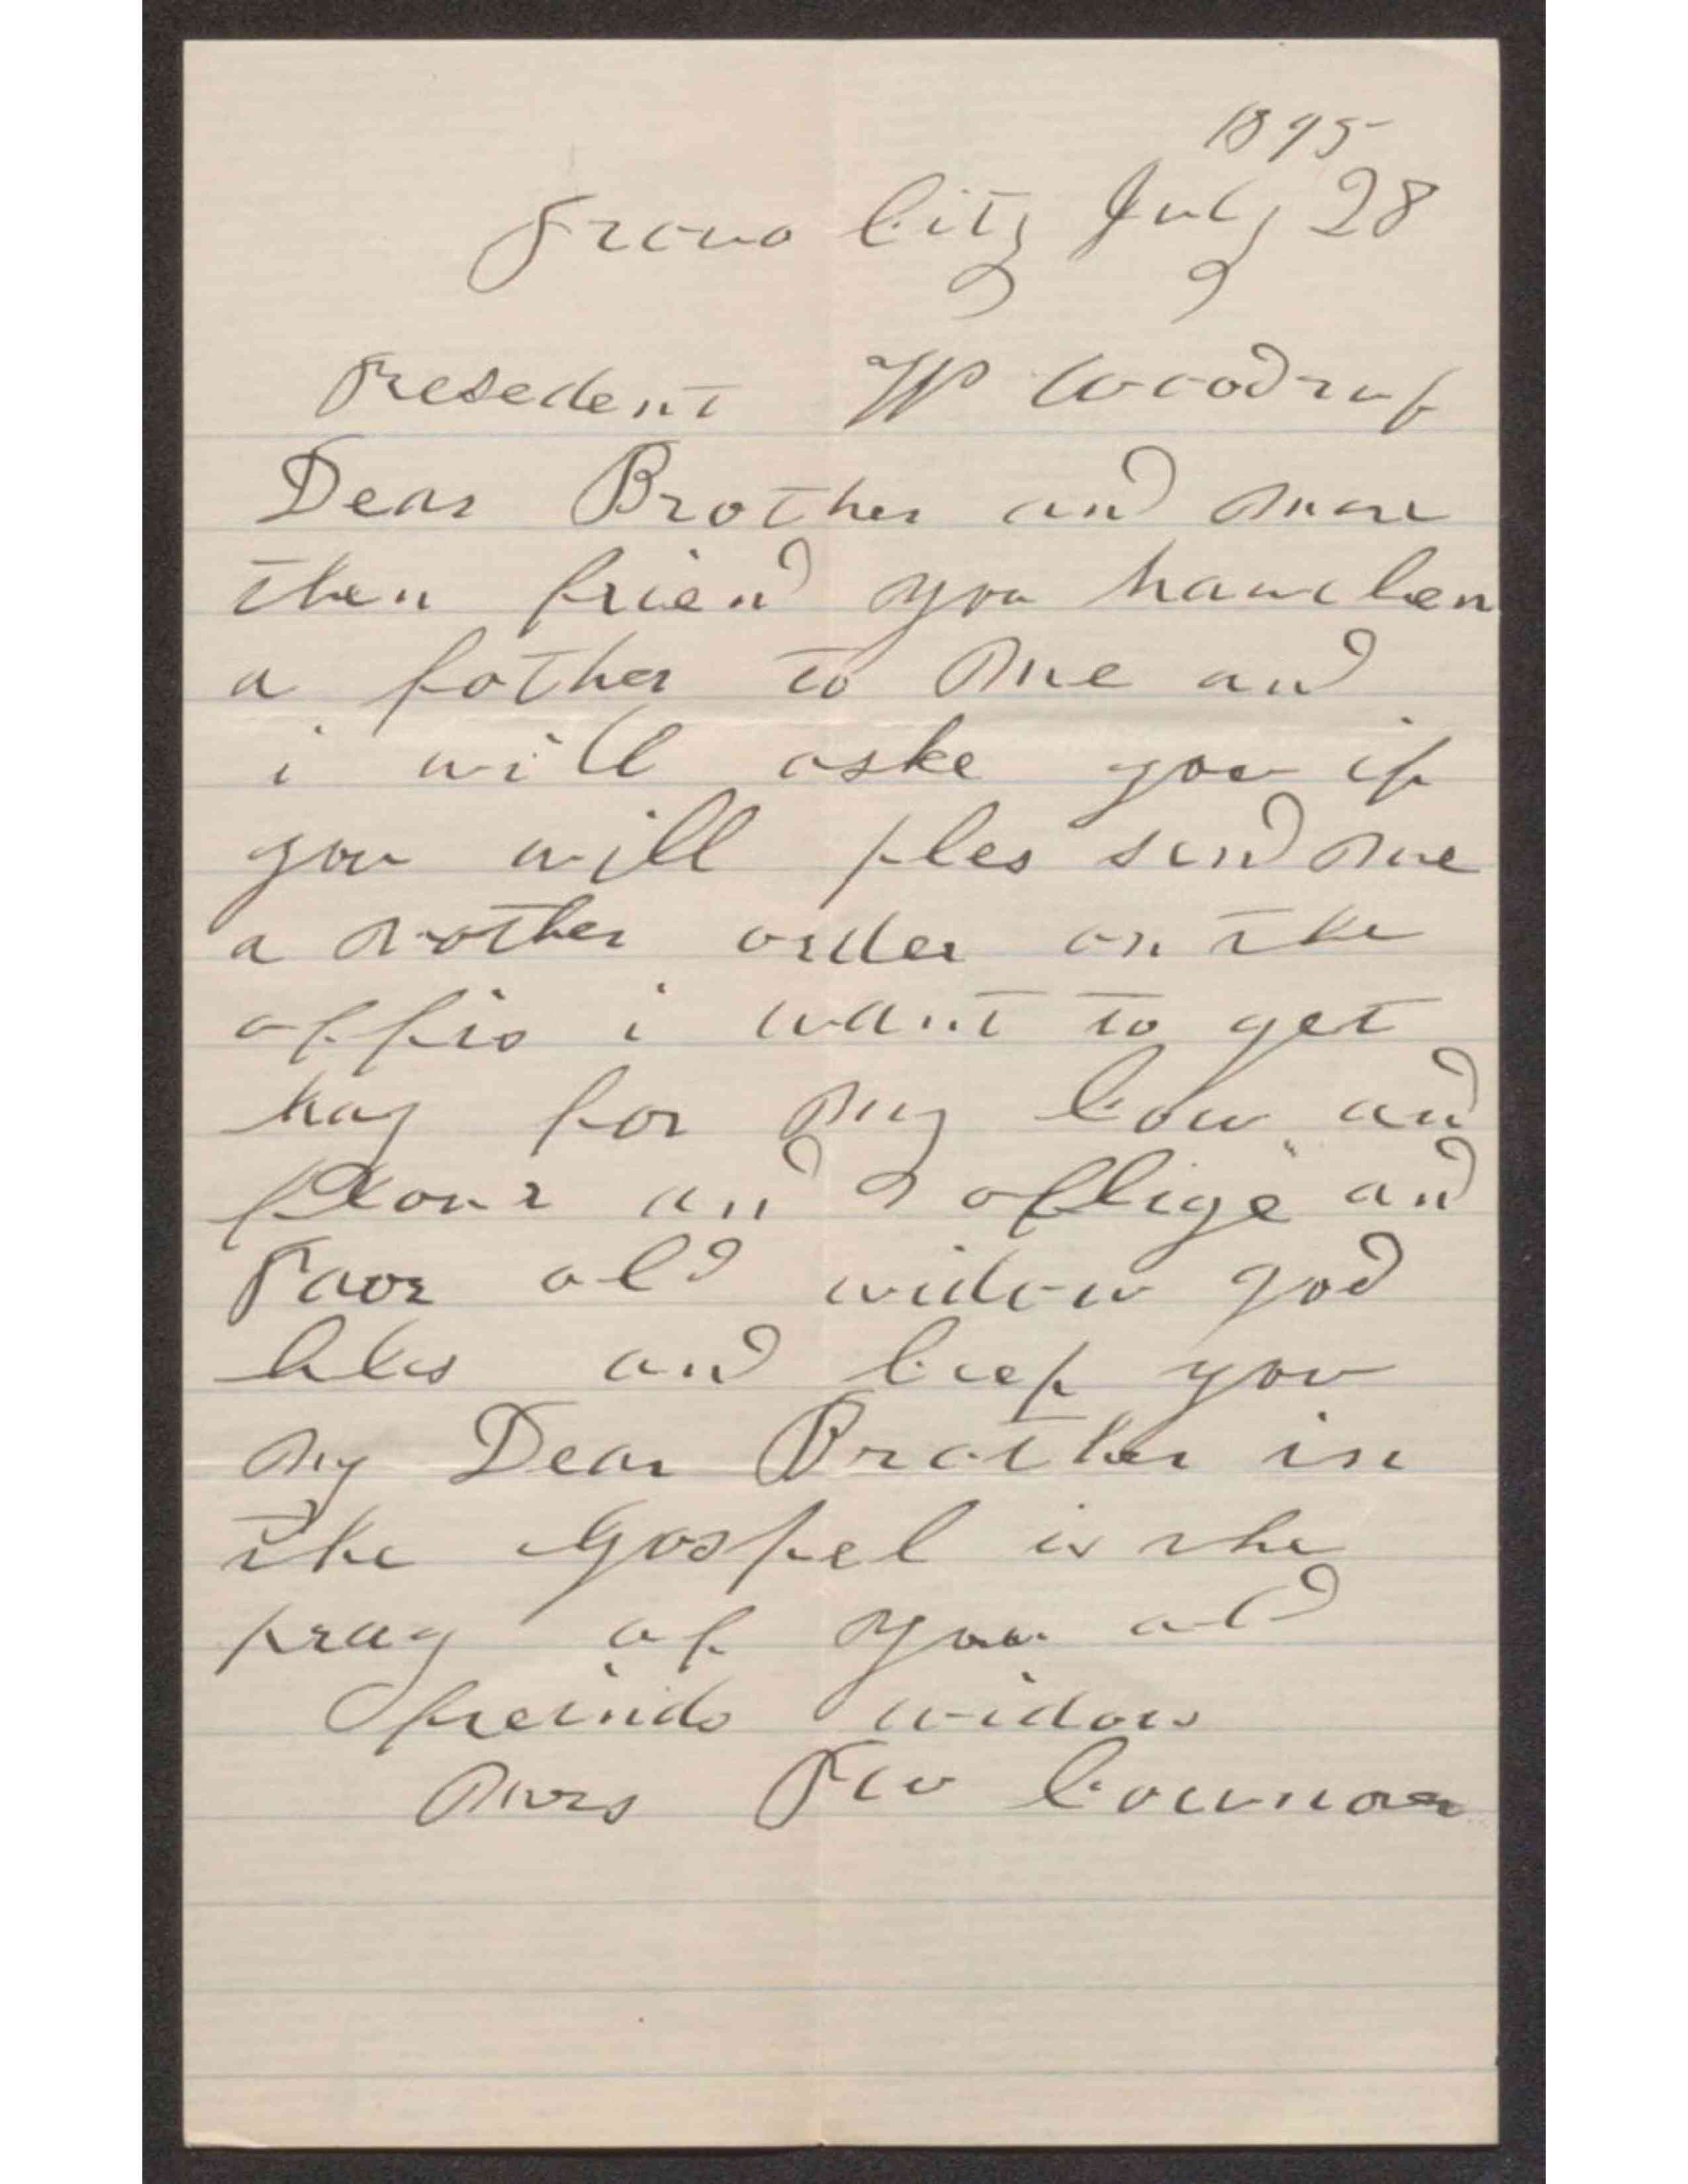 1895
Provo City July 28
Presedent W Woodruf
Dear Brother and more
then friend you have ben
a father to me and
i will aske you if
you will ples send me
a nother order on the
offis i want to get
hay for my Cow and
flour and oblige and
Poor old widow god
bles and keep you
my Dear Brother in
the Gospel is the
pray of you old
freinds widow
Mrs